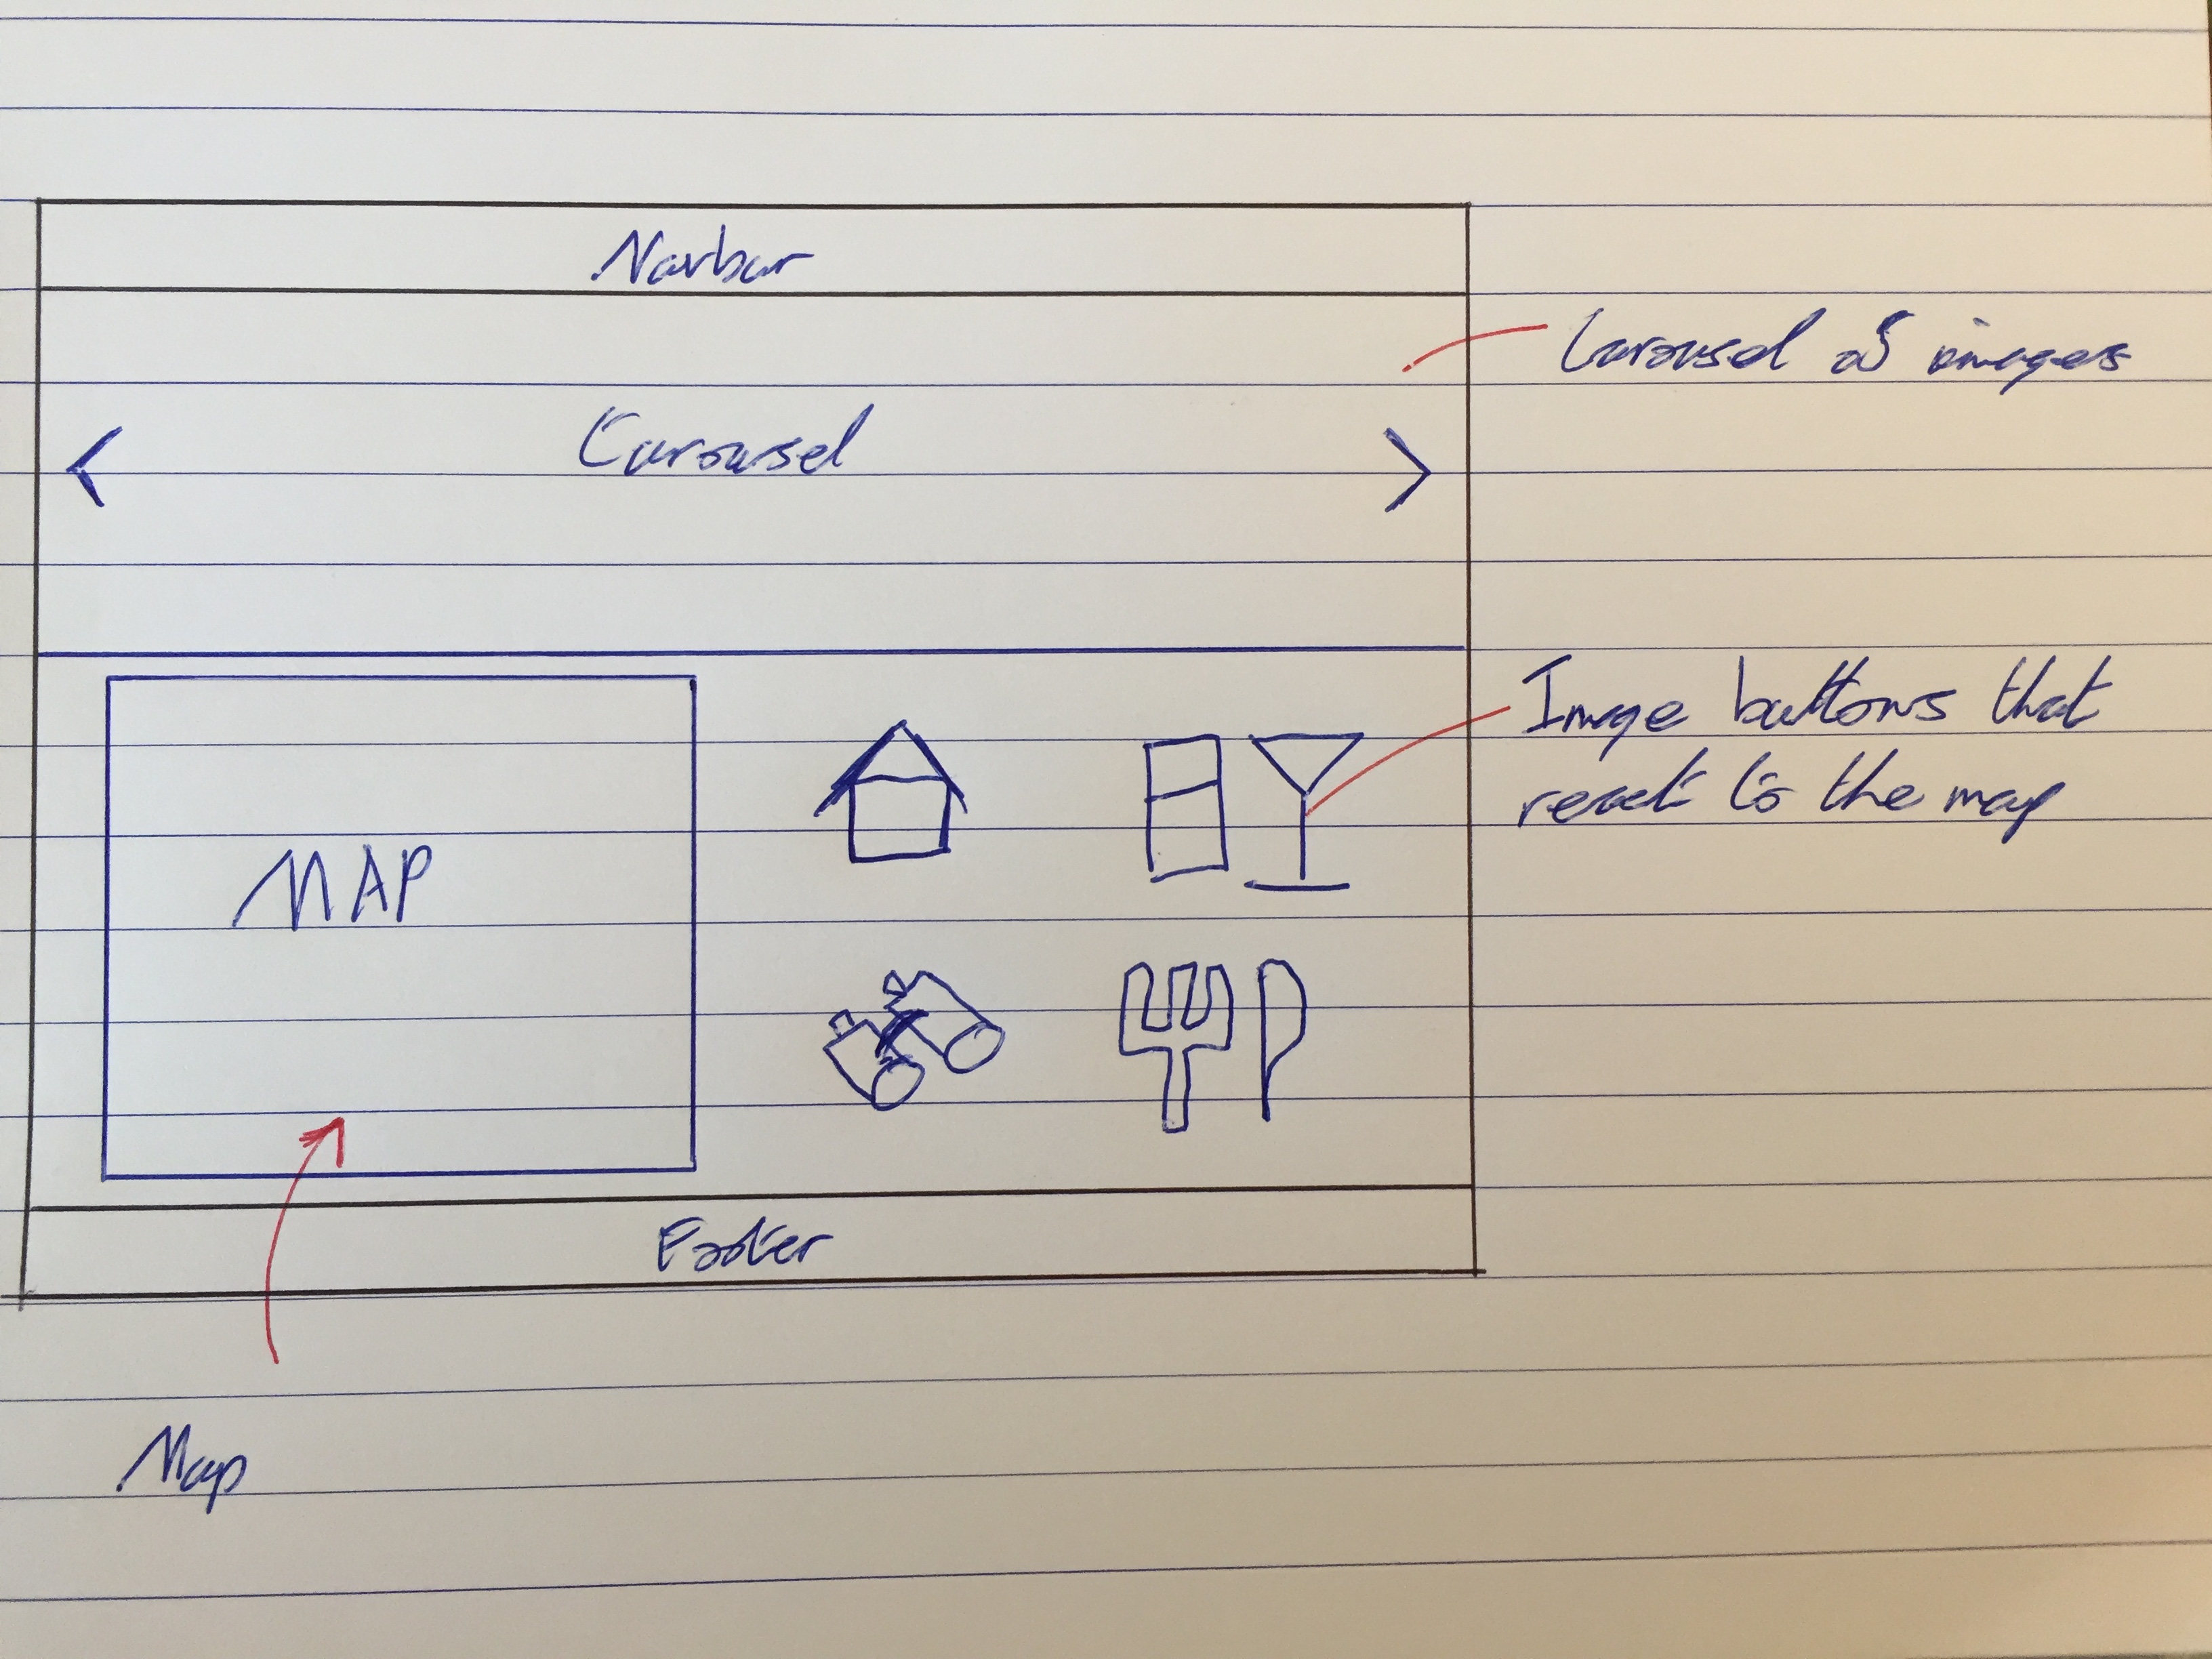 Navbar
Carousel of images
Carousel
Image buttons that
react to the map
MAP
Footer
Map